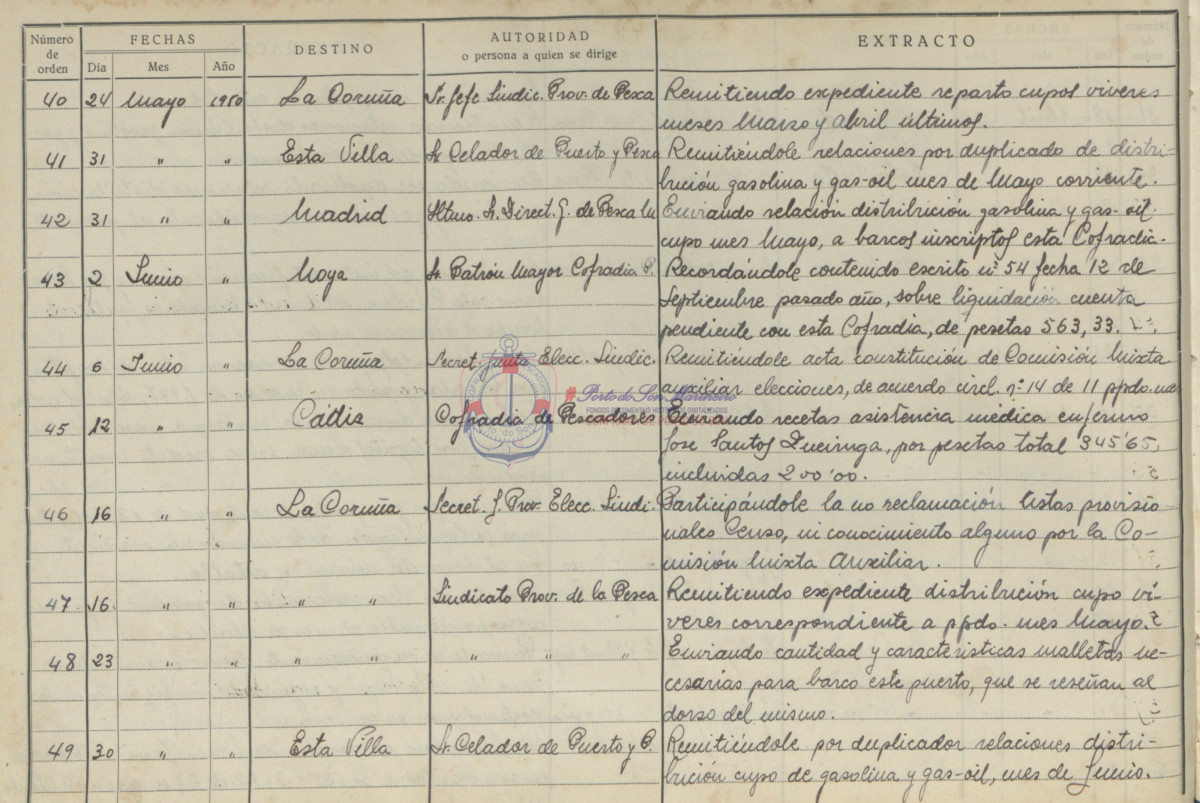 Número de orden
FECHAS
Día Mes Año
DESTINO
AUTORIDAD
o persona a quien se dirige
EXTRACTO
40 24 Mayo 1950 La Coruña Sr. Jefe Sindic. Prov. de Pesca Remitiendo expediente reparto cupos viveres
meses Marzo y Abril últimos.
41 31 " " Esta Villa Sr. Celador de Puerto y Pesca Remitiéndole relaciones por duplicado de distri-
bución gasolina y gas-oil mes de Mayo corriente.
42 31 " " Madrid Iltmo. Sr. Direct. G. de Pesca Enviando relación distribución gasolina y gas-oil
cupo mes Mayo, a barcos inscriptos esta Cofradia.
43 2 Junio " Moya Sr. Patrón Mayor Cofradia P. Recordándole contenido escrito nº 54 fecha 12 de
Septiembre pasado año, sobre liquidación cuenta
pendiente con esta Cofradia, de pesetas 563,33.
44 6 Junio " La Coruña Secret. Junta Elecc. Sindic. Remitiéndole acta constitución de Comisión Mixta
auxiliar elecciones, de acuerdo circl. nº 14 de 11 ppdo.
45 12 " " Cádiz Cofradia de Pescadores Enviando recetas asistencia médica enfermo
Jose Santos, por pesetas total 345'65,
incluidas 200'00.
46 16 " " La Coruña Secret. J. Prov. Elecc. Sindi. Participándole la no reclamación listas provisio-
nales Censo, ni conocimiento alguno por la Co-
misión Mixta Auxiliar.
47 16 " " " " Sindicato Prov. de la Pesca Remitiendo expediente distribución cupo ví-
veres correspondiente a ppdo. mes Mayo.
48 23 " " " " " " " Enviando cantidad y caracteristicas malletas ne-
cesarias para barco este puerto, que se reseñan al
dorso del mismo.
49 30 " " Esta Villa Sr. Celador de Puerto y P. Remitiéndole por duplicador relaciones distri-
bución cupo de gasolina y gas-oil, mes de Junio.
#Porto do Son Marinheiro
FONDOS DOCUMENTAIS HISTÓRICOS DIGITALIZADOS